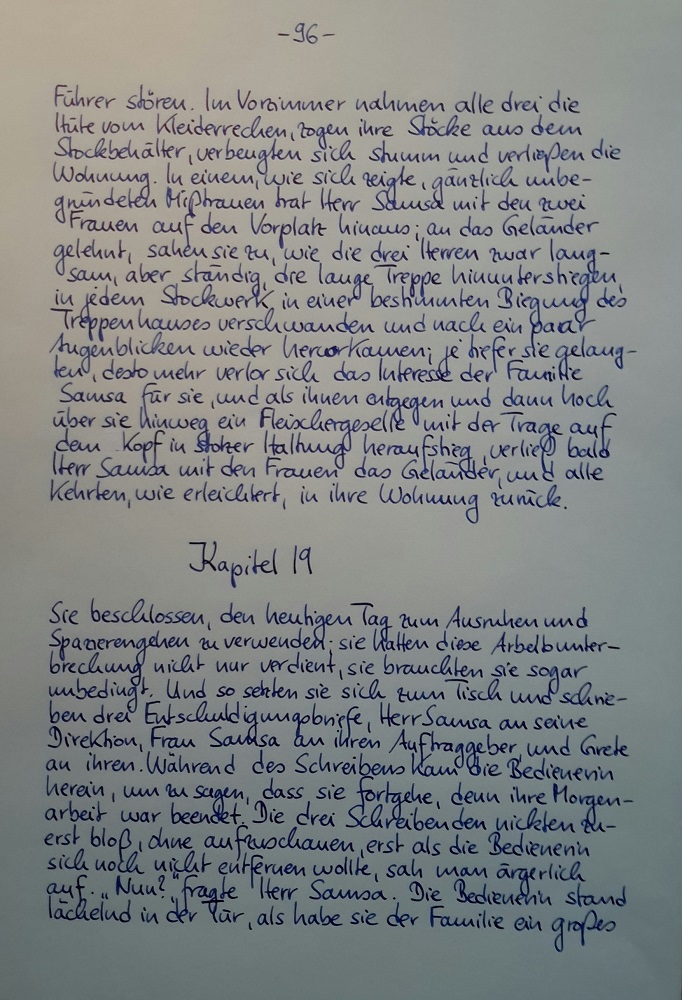 -96-
Führer stören. Im Vorzimmer nahmen alle drei die
Hüte vom Kleiderrechen, zogen ihre Stöcke aus dem
Stockbehälter, verbeugten sich stumm und verließen die
Wohnung. In einem, wie sich zeigte, gänzlich unbe-
gründeten Mißtrauen trat Herr Samsa mit den zwei
Frauen auf den Vorplatz hinaus; an das Geländer
gelehnt, sahen sie zu, wie die drei Herren zwar lang-
sam, aber ständig, die lange Treppe hinunterstiegen,
in jedem Stockwerk in einer bestimmten Biegung des
Treppenhauses verschwanden und nach ein paar
Augenblicken wieder hervorkamen; je tiefer sie gelang-
ten, desto mehr verlor sich das Interesse der Familie
Samsa für sie, und als ihnen entgegen und dann hoch
über sie hinweg ein Fleischergeselle mit der Trage auf
dem Kopf in stolzer Haltung heraufstieg, verließ bald
Herr Samsa mit den Frauen das Geländer, und alle
kehrten, wie erleichtert, in ihre Wohnung zurück.
Kapitel 19
Sie beschlossen, den heutigen Tag zum Ausruhen und
Spazierengehen zu verwenden; sie hatten diese Arbeitsunter-
brechung nicht nur verdient, sie brauchten sie sogar
unbedingt. Und so setzten sie sich zum Tisch und schrie-
ben drei Entschuldigungsbriefe, Herr Samsa an seine
Direktion, Frau Samsa an ihren Auftraggeber, und Grete
an ihren. Während des Schreibens kam die Bedienerin
herein, um zu sagen, dass sie fortgehe, denn ihre Morgen-
arbeit war beendet. Die drei Schreibenden nickten zu-
erst bloß, ohne aufzuschauen, erst als die Bedienerin
sich noch nicht entfernen wollte, sah man ärgerlich
auf. „Nun?" fragte Herr Samsa. Die Bedienerin stand
lächelnd in der Tür, als habe sie der Familie ein großes